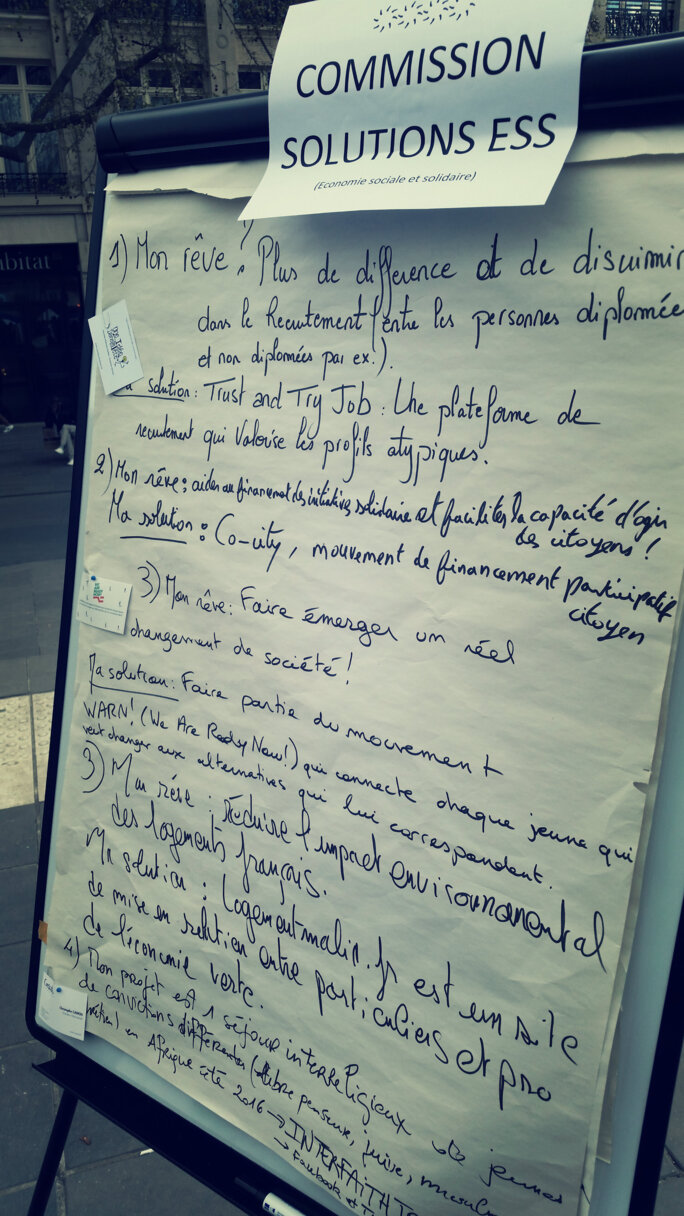 COMMISSION
SOLUTIONS ESS
(Economie sociale et solidaire)
bitat
1) Mon rêve : Plus de difference et de discrimin
dans le Recrutement (entre les personnes diplomée
et non diplomées par ex.).
solution : Trust and Try Job : Une plateforme de
recrutement qui valorise les profils atypiques.
2) Mon rêve : aider au financement des initiatives solidaire et faciliter la capacité d'agir
des citoyens !
Ma solution : Co-city, mouvement de financement participatif
citoyen
3) Mon rêve : Faire émerger un réel
changement de société !
Ma solution : Faire partie du mouvement
WARN! (We Are Ready Now!) qui connecte chaque jeune qui
veut changer aux alternatives qui lui correspondent.
3) Mon rêve : réduire l'impact environnemental
des logements français.
Ma solution : Logementmalin.fr est un site
de mise en relation entre particuliers et pro
de l'économie verte.
4) Mon projet est 1 séjour interreligieux de jeunes
de convictions différentes (libre penseur, juive, musulm
en Afrique été 2016 → INTERFAITH To
→ Facebook et T